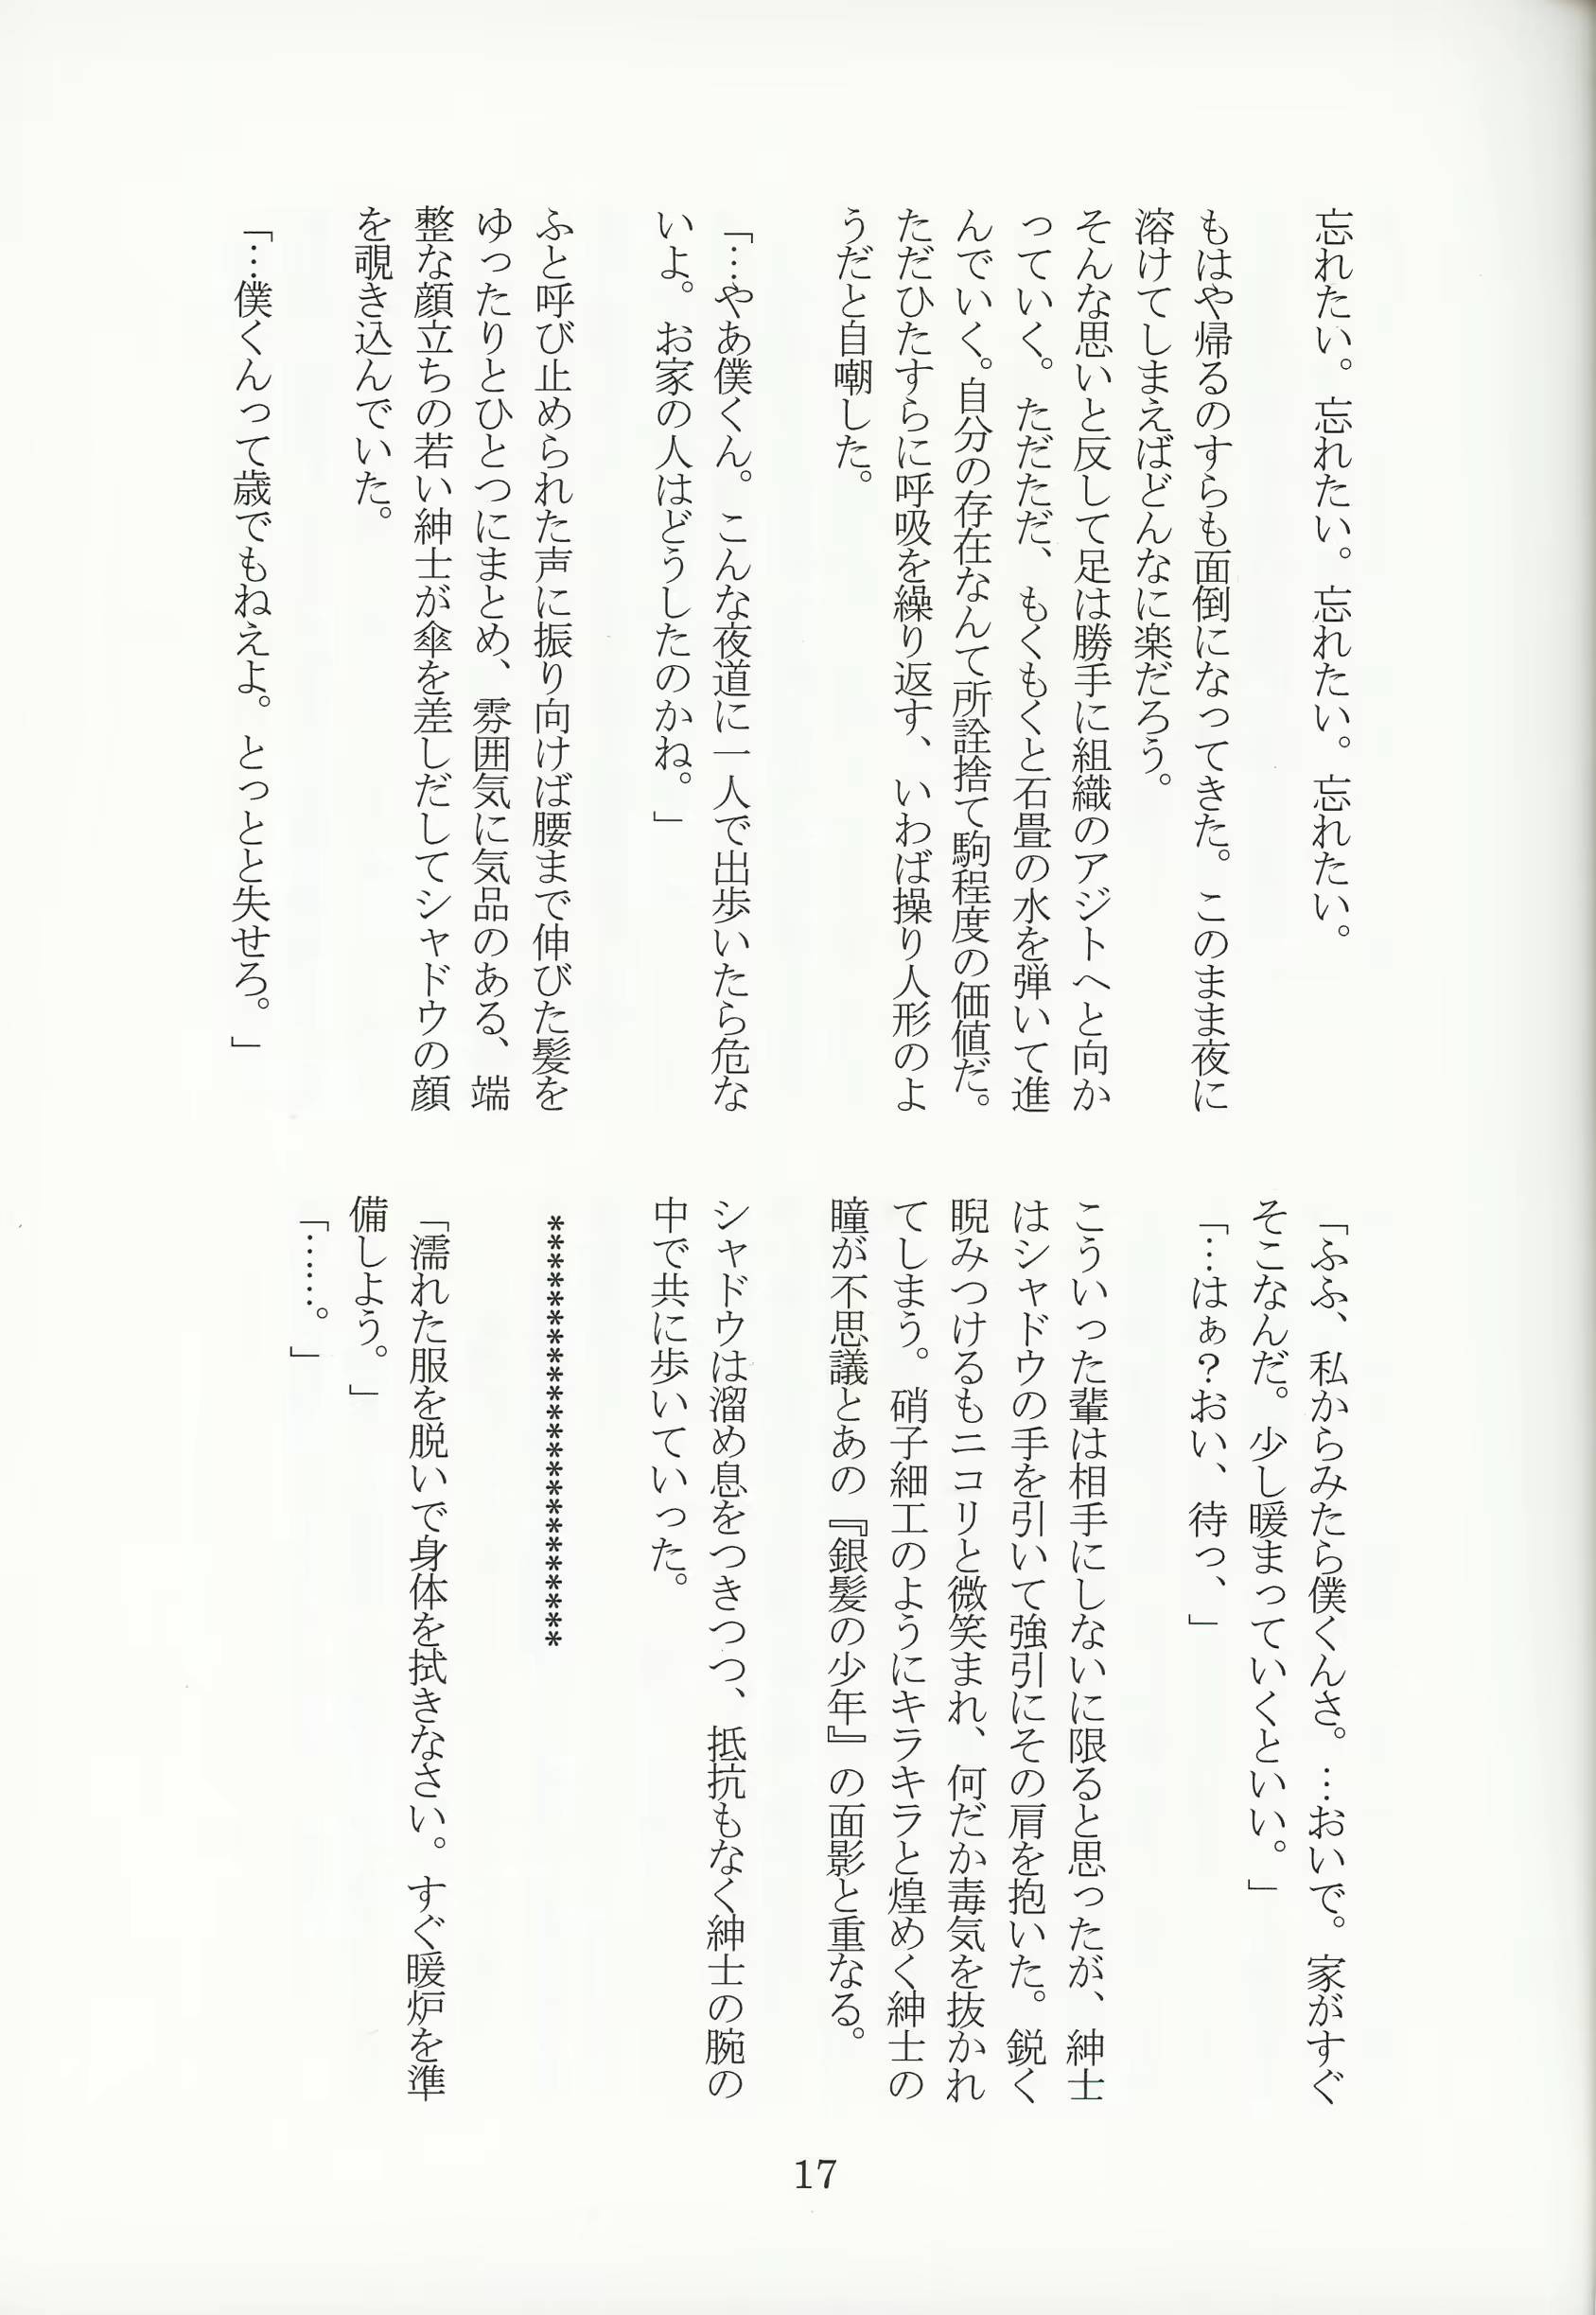 忘れたい。忘れたい。忘れたい。忘れたい。
もはや帰るのすらも面倒になってきた。このまま夜に
溶けてしまえばどんなに楽だろう。
そんな思いと反して足は勝手に組織のアジトへと向か
っていく。ただただ、もくもくと石畳の水を弾いて進
んでいく。自分の存在なんて所詮捨て駒程度の価値だ。
ただひたすらに呼吸を繰り返す、いわば操り人形のよ
うだと自嘲した。
「…やあ僕くん。こんな夜道に一人で出歩いたら危な
いよ。お家の人はどうしたのかね。」
ふと呼び止められた声に振り向けば腰まで伸びた髪を
ゆったりとひとつにまとめ、雰囲気に気品のある、端
整な顔立ちの若い紳士が傘を差しだしてシャドウの顔
を覗き込んでいた。
「…僕くんって歳でもねえよ。とっとと失せろ。」
「ふふ、私からみたら僕くんさ。…おいで。家がすぐ
そこなんだ。少し暖まっていくといい。」
「…はぁ？おい、待っ、」
こういった輩は相手にしないに限ると思ったが、紳士
はシャドウの手を引いて強引にその肩を抱いた。鋭く
睨みつけるもニコリと微笑まれ、何だか毒気を抜かれ
てしまう。硝子細工のようにキラキラと煌めく紳士の
瞳が不思議とあの『銀髪の少年』の面影と重なる。
シャドウは溜め息をつきつつ、抵抗もなく紳士の腕の
中で共に歩いていった。
***********************
「濡れた服を脱いで身体を拭きなさい。すぐ暖炉を準
備しよう。」
「……。」
17